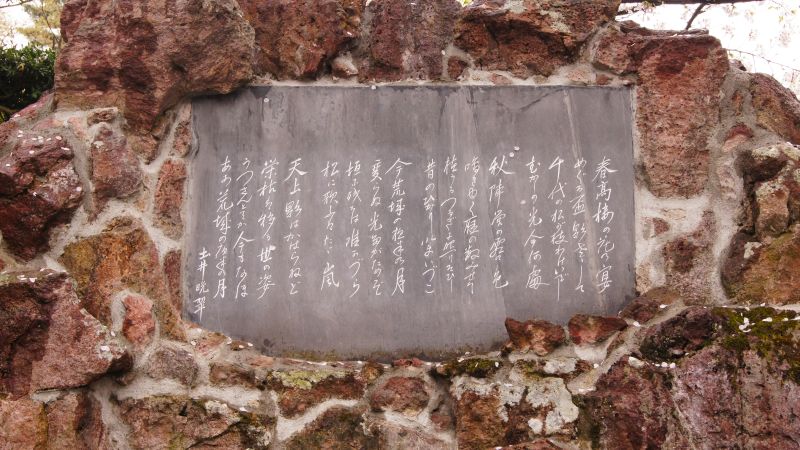 春高楼の花の宴
めぐる盃影さして
千代の松が枝わけいでし
むかしの光今何處
秋陣営の霜の色
鳴きゆく雁の数みせて
植うるつるぎに照りそひし
昔の光今いづこ
今荒城の夜半の月
変らぬ光たがためぞ
垣に残るは唯かづら
松に歌ふはたゞ嵐
天上影はかはらねど
栄枯は移る世の姿
うつさんとてか今もなほ
あゝ荒城の夜半の月
土井晩翠